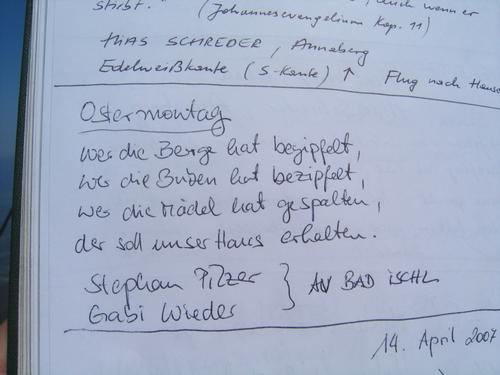 stirbt." , auch wenn er
(Johannesevangelium Kap. 11)
SCHREDER, Annaberg
Edelweißkante (S-Kante) ↑ Flug nach Hause
Ostermontag
wer die Berge hat begipfelt,
wer die Buben hat bezipfelt,
wer die Mädel hat gespalten,
der soll unser Haus erhalten.
Stephan Pilzer } AV BAD ISCHL
Gabi Wieder
14. April 2007